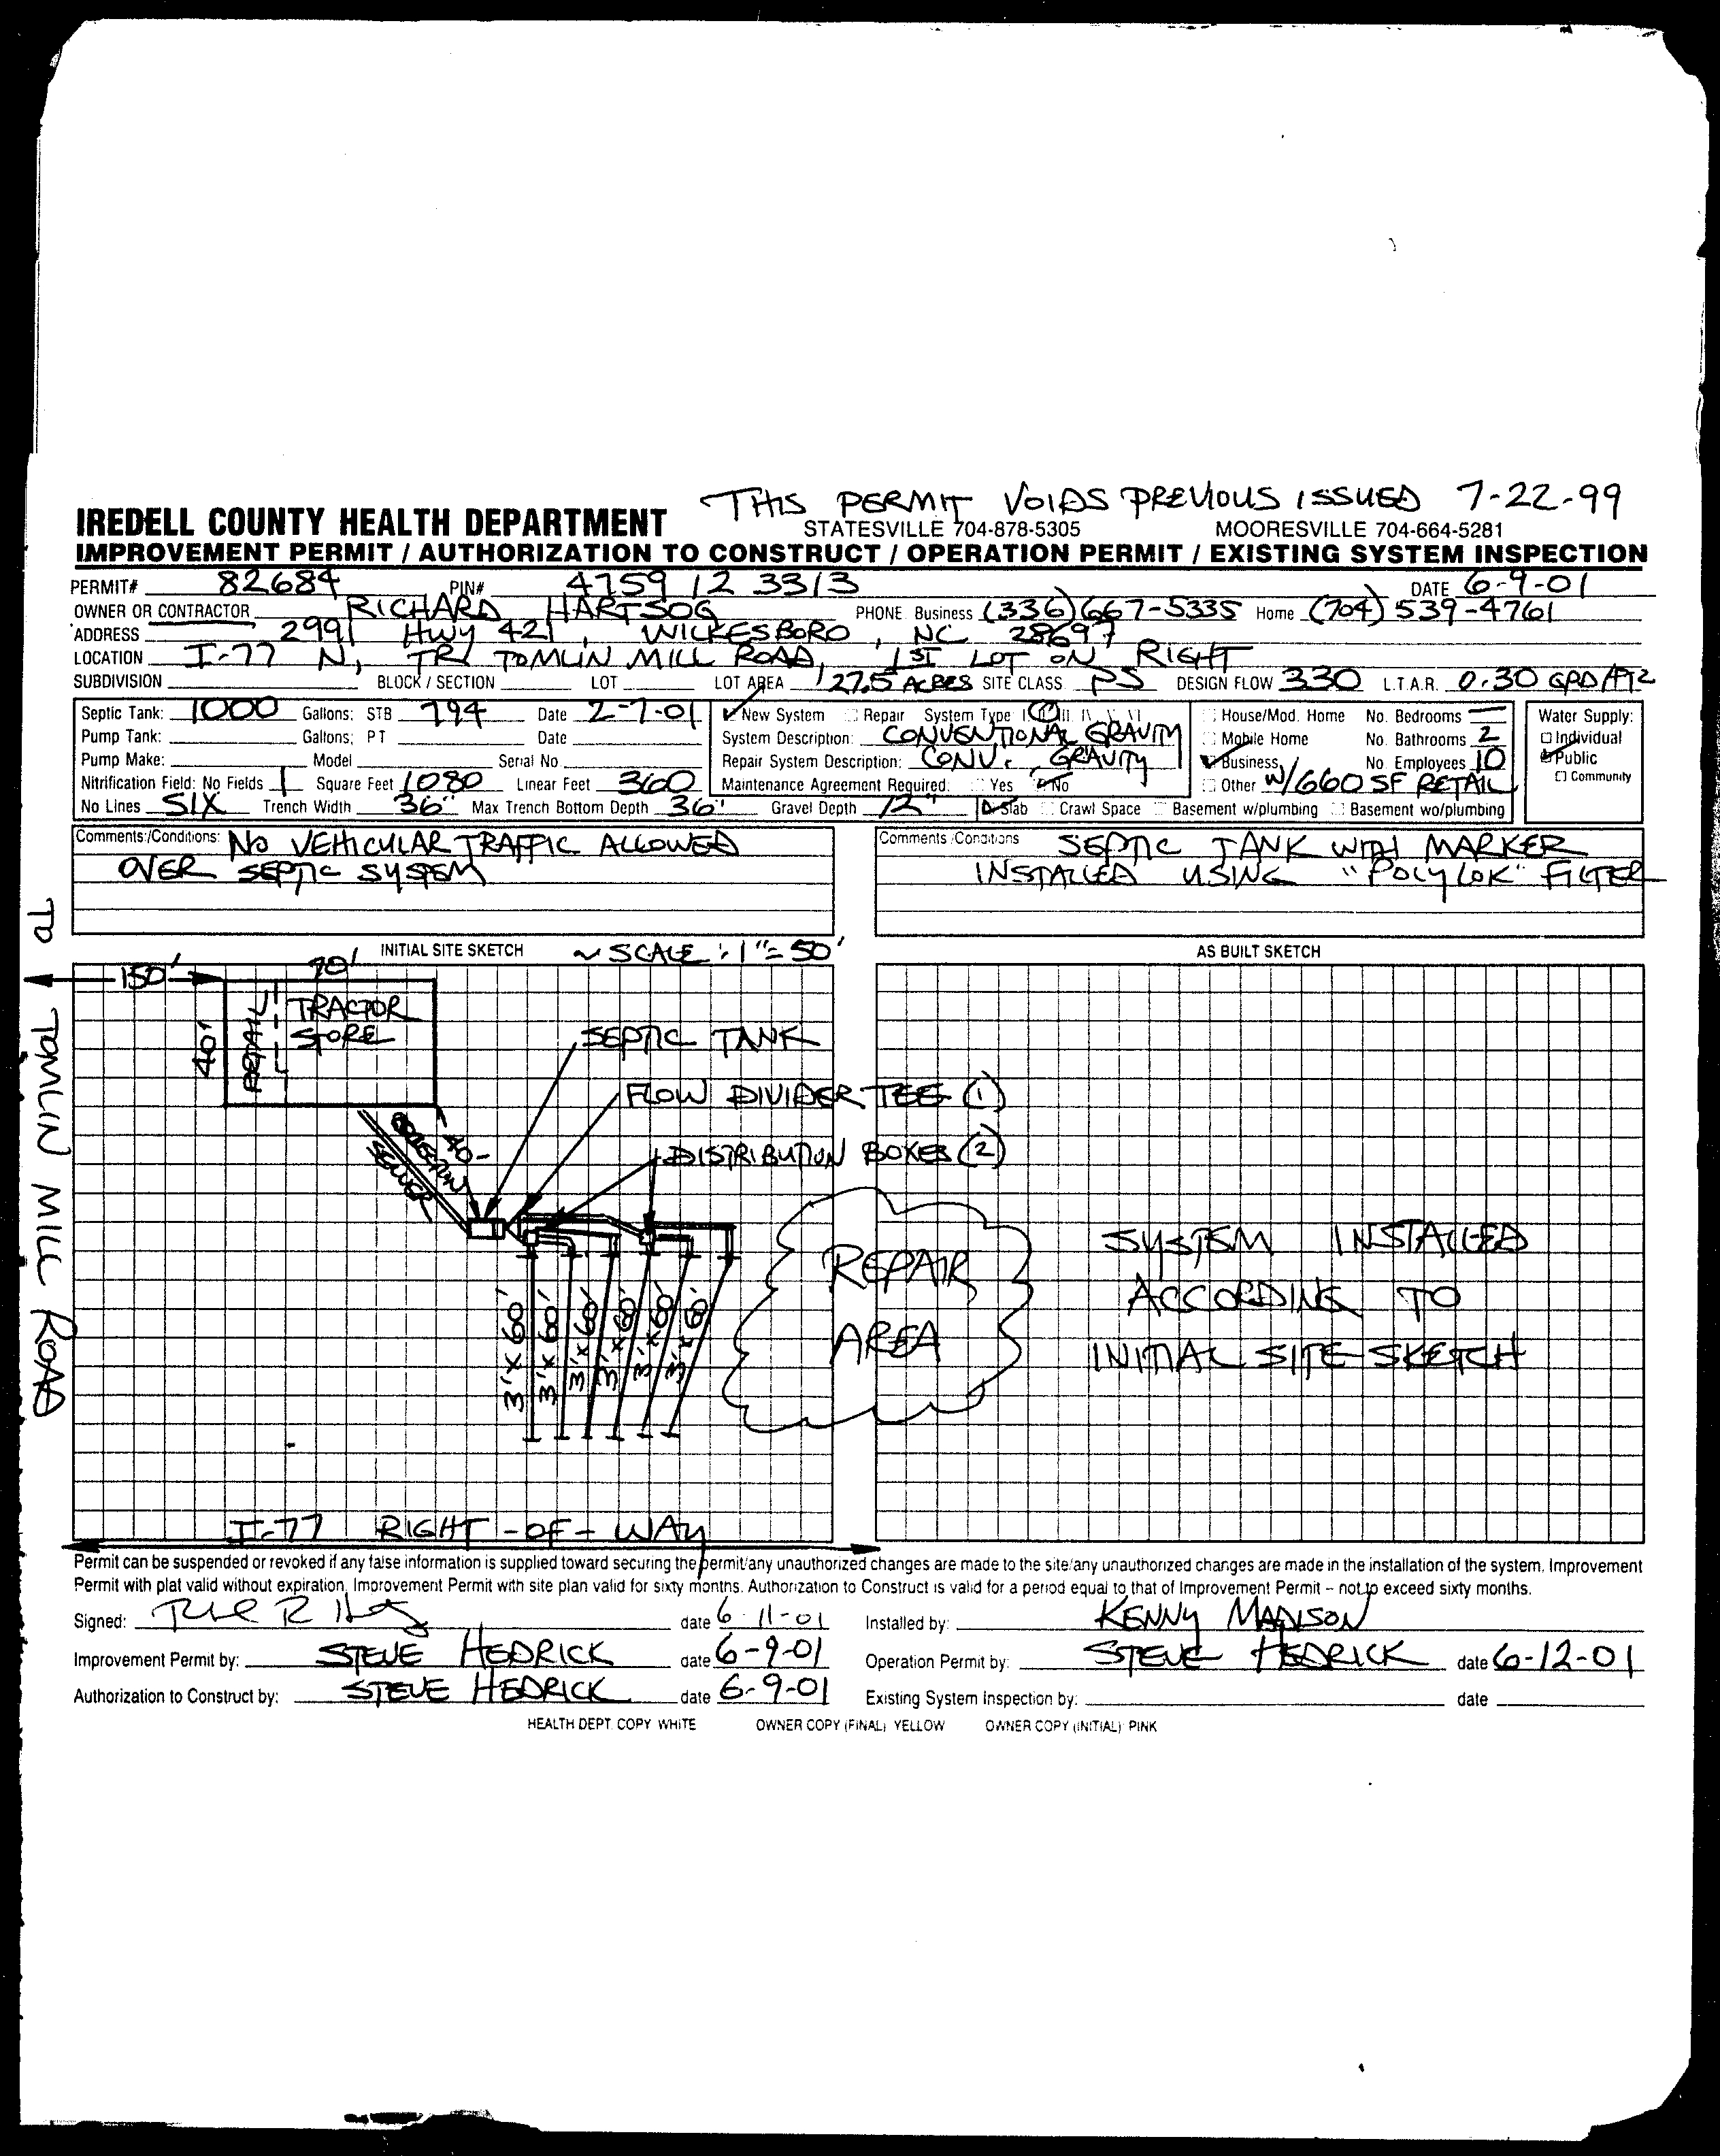 THIS PERMIT VOIDS PREVIOUS ISSUED 7-22-99
IREDELL COUNTY HEALTH DEPARTMENT STATESVILLE 704-878-5305 MOORESVILLE 704-664-5281
IMPROVEMENT PERMIT / AUTHORIZATION TO CONSTRUCT / OPERATION PERMIT / EXISTING SYSTEM INSPECTION
PERMIT# 82684 PIN# 4759 12 3313 DATE 6-9-01
OWNER OR CONTRACTOR RICHARD HARTSOG PHONE Business (336) 667-5335 Home (704) 539-4761
ADDRESS 2991 HWY 421, WILKESBORO, NC 28697
LOCATION I-77 N, TR/ TOMLIN MILL ROAD, 1ST LOT ON RIGHT
SUBDIVISION BLOCK / SECTION LOT LOT AREA 27.5 ACRES SITE CLASS PS DESIGN FLOW 330 L.T.A.R. 0.30 GPD/FT2
Septic Tank: 1000 Gallons: STB 794 Date 2-7-01 New System Repair System Type I II III IV V VI House/Mod. Home No. Bedrooms — Water Supply:
Pump Tank: Gallons; PT Date System Description: CONVENTIONAL GRAVITY Mobile Home No. Bathrooms 2 Individual
Pump Make: Model Serial No. Repair System Description: CONV. GRAVITY Business No. Employees 10 Public
Nitrification Field: No Fields 1 Square Feet 1080 Linear Feet 360 Maintenance Agreement Required: Yes No Other W/660 SF RETAIL Community
No Lines SIX Trench Width 36" Max Trench Bottom Depth 36" Gravel Depth 12" Slab Crawl Space Basement w/plumbing Basement wo/plumbing
Comments/Conditions: NO VEHICULAR TRAFFIC ALLOWED
OVER SEPTIC SYSTEM
Comments/Conditions SEPTIC TANK WITH MARKER
INSTALLED USING "POLYLOK" FILTER
INITIAL SITE SKETCH ~ SCALE: 1"=50'
AS BUILT SKETCH
TO TOMLIN MILL ROAD
150'
70'
40'
RETAIL
TRACTOR
STORE
SEPTIC TANK
FLOW DIVIDER TEE (1)
DISTRIBUTION BOXES (2)
40-
SEWER
3'x60'
3'x60'
3'x60'
3'x60'
3'x60'
3'x60'
REPAIR
AREA
SYSTEM INSTALLED
ACCORDING TO
INITIAL SITE SKETCH
I-77 RIGHT-OF-WAY
Permit can be suspended or revoked if any false information is supplied toward securing the permit/any unauthorized changes are made to the site/any unauthorized changes are made in the installation of the system. Improvement
Permit with plat valid without expiration, Improvement Permit with site plan valid for sixty months. Authorization to Construct is valid for a period equal to that of Improvement Permit – not to exceed sixty months.
Signed: date 6-11-01 Installed by: KENNY MADISON
Improvement Permit by: STEVE HEDRICK date 6-9-01 Operation Permit by: STEVE HEDRICK date 6-12-01
Authorization to Construct by: STEVE HEDRICK date 6-9-01 Existing System Inspection by: date
HEALTH DEPT. COPY WHITE OWNER COPY (FINAL) YELLOW OWNER COPY (INITIAL) PINK